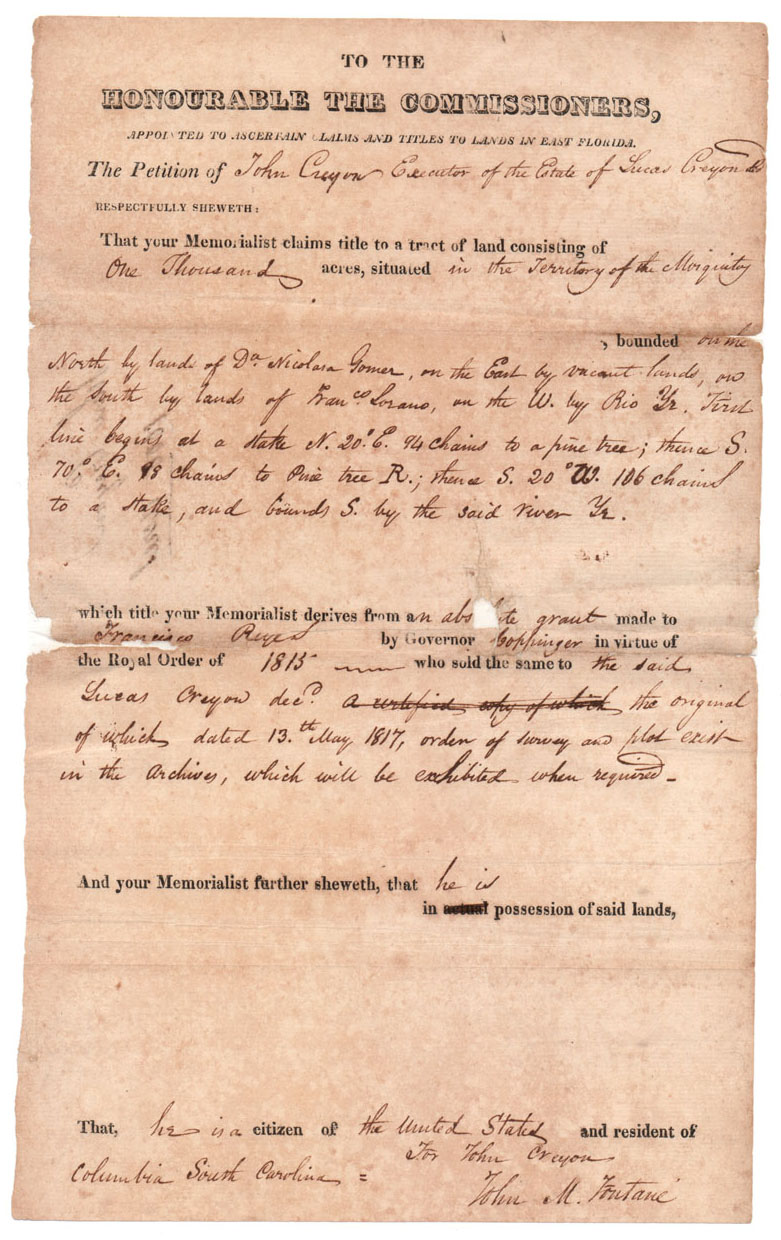 TO THE
HONOURABLE THE COMMISSIONERS,
APPOINTED TO ASCERTAIN CLAIMS AND TITLES TO LANDS IN EAST FLORIDA.
The Petition of John Creyon Executor of the Estate of Lucas Creyon
RESPECTFULLY SHEWETH:
That your Memorialist claims title to a tract of land consisting of
One Thousand acres, situated in the Territory of the
, bounded on the
North by lands of Dª Nicolasa Gomer, on the East by vacant lands, on
the South by lands of Franco Lorano, on the W. by Rio Yr. First
line begins at a stake N. 20° E. 94 chains to a pine tree; thence S.
70° E. 98 chains to Pine tree R.; thence S. 20° W. 106 chains
to a stake, and bounds S. by the said river Yr.
which title your Memorialist derives from an abs te grant made to
Francisco Reyes by Governor Coppinger in virtue of
the Royal Order of 1815 who sold the same to the said
Lucas Creyon decd. a certified copy of which the original
of which dated 13.th May 1817, order of survey and plot exist
in the Archives, which will be exhibited when required -
And your Memorialist further sheweth, that he is
in actual possession of said lands,
That, he is a citizen of the United States and resident of
Columbia South Carolina =
For John Creyon
John M. Fontané